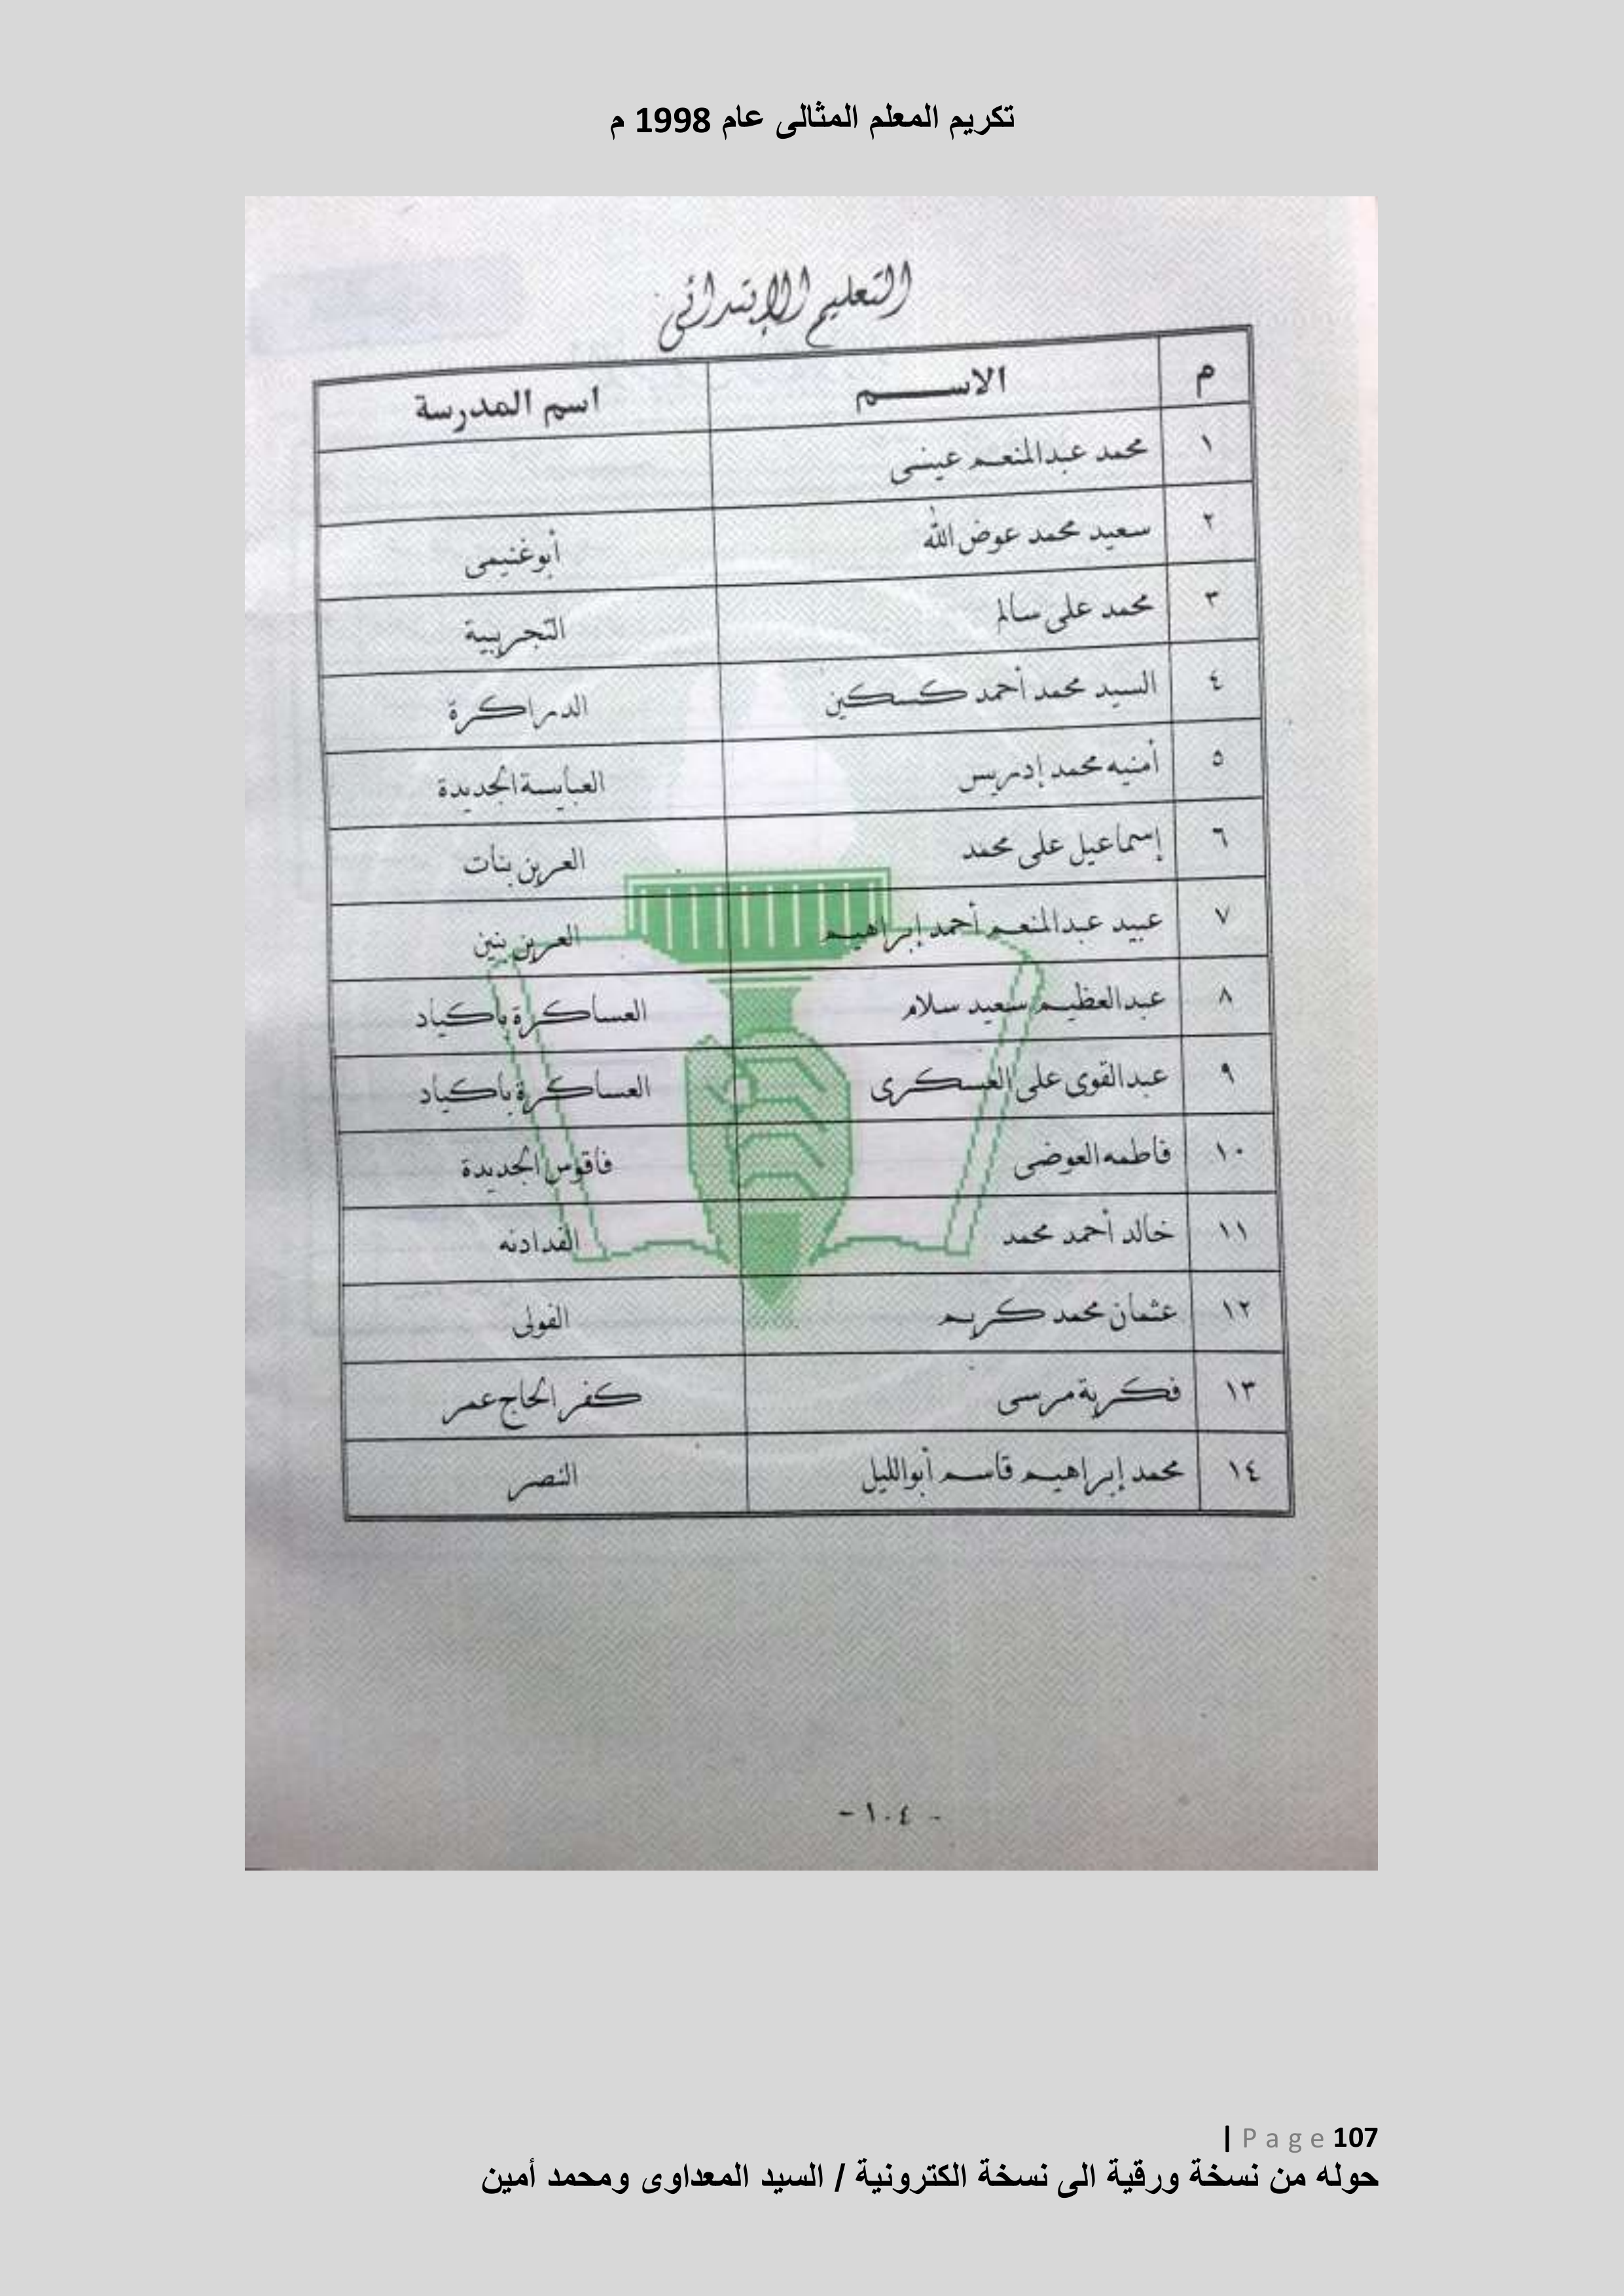 تكريم المعلم المثالى عام 1998 م
التعليم الإبتدائى
م الاســـم اسم المدرسة
١ محمد عبدالمنعم عيسى
٢ سعيد محمد عوض الله أبوغنيمى
٣ محمد على سالم التجريبية
٤ السيد محمد أحمد كسكين الدراكرة
٥ أمنيه محمد إدريس العبايسة الجديدة
٦ إسماعيل على محمد العرين بنات
٧ عبيد عبدالمنعم أحمد إبراهيم العرين بنين
٨ عبدالعظيم سعيد سلام العساكرة بأكياد
٩ عبدالقوى على العسكرى العساكرة بأكياد
١٠ فاطمه العوضى فاقوس الجديدة
١١ خالد أحمد محمد الفدادنه
١٢ عثمان محمد كريم الفولى
١٣ فكرية مرسى كفر الحاج عمر
١٤ محمد إبراهيم قاسم أبوالليل النصر
- ١٠٤ -
| Page 107
حوله من نسخة ورقية الى نسخة الكترونية / السيد المعداوى ومحمد أمين